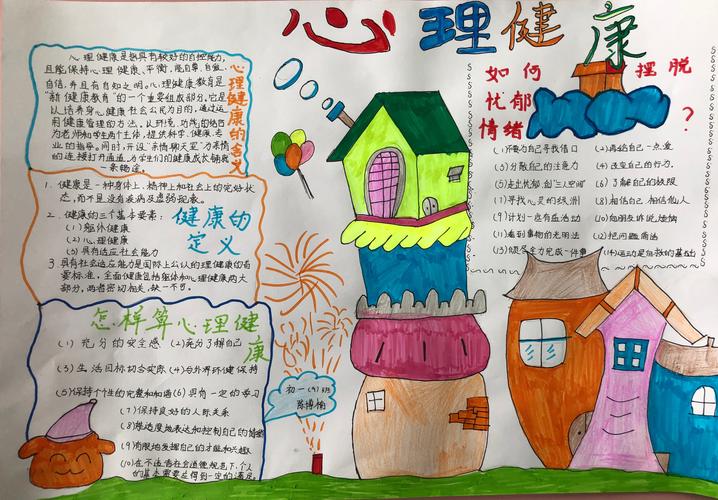 心理健康
心理健康的含义
心理健康是指具有较好的自控能力,
且能保持心理健康、平衡,能自尊、自爱、
自信,并且有自知之明。心理健康教育是
"新健康教育"的一个重要组成部分。它是
以培养身心健康社会公民为目的,通过运
用健康管理的方法,从环境
为老师和学生两个主体,提供科学、健康、专
业的指导。同时,开设"亲情聊天室"
的连接打开通道,为学生们的健康成长铺就
一条畅途。
健康的定义
1. 健康是一种身体上、精神上和社会上的完好状
态,而不是没有疾病及虚弱现象。
2. 健康的三个基本要素:
(1)躯体健康
(2)心理健康
(3)具有适应社会能力
3 具有社会适应能力是国际上公认的心理健康的首
要标准,全面健康包括躯体和心理健康两大
部分,两者密切相关,缺一不可。
怎样算心理健康
(1)充分的安全感 (2)充分了解自己
(3)生活目标切合实际 (4)与外界环健保持
(5)保持个性的完整和和谐 (6)具有一定的学习
(7)保持良好的人际关系
(8)能适度地表达和控制自己的情绪
(9)有限地发挥自己的才能和兴趣
(10)在不违背社会道德规范下,个人
的基本需要应得到一定的满足。
初一(9)班
陈博楠
如何摆脱
忧郁
情绪?
(1)不要为自己寻找借口 (2)再给自己一点爱
(3)分散自己的注意力 (4)改变自己的行为.
(5)走出忧郁,创"三八空间" (6)了解自己的极限
(7)寻找人灵的绿洲 (8)相信自己,相信他人
(9)计划一些有益活动 (10)向朋友诉说烦恼
(11)看到事物的光明面 (12)把问题简洁
(13)倾尽全力完成一件事 (14)运动是自救的基础